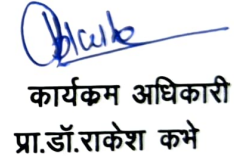 कार्यक्रम अधिकारी
प्रा.डॉ.राकेश कभे